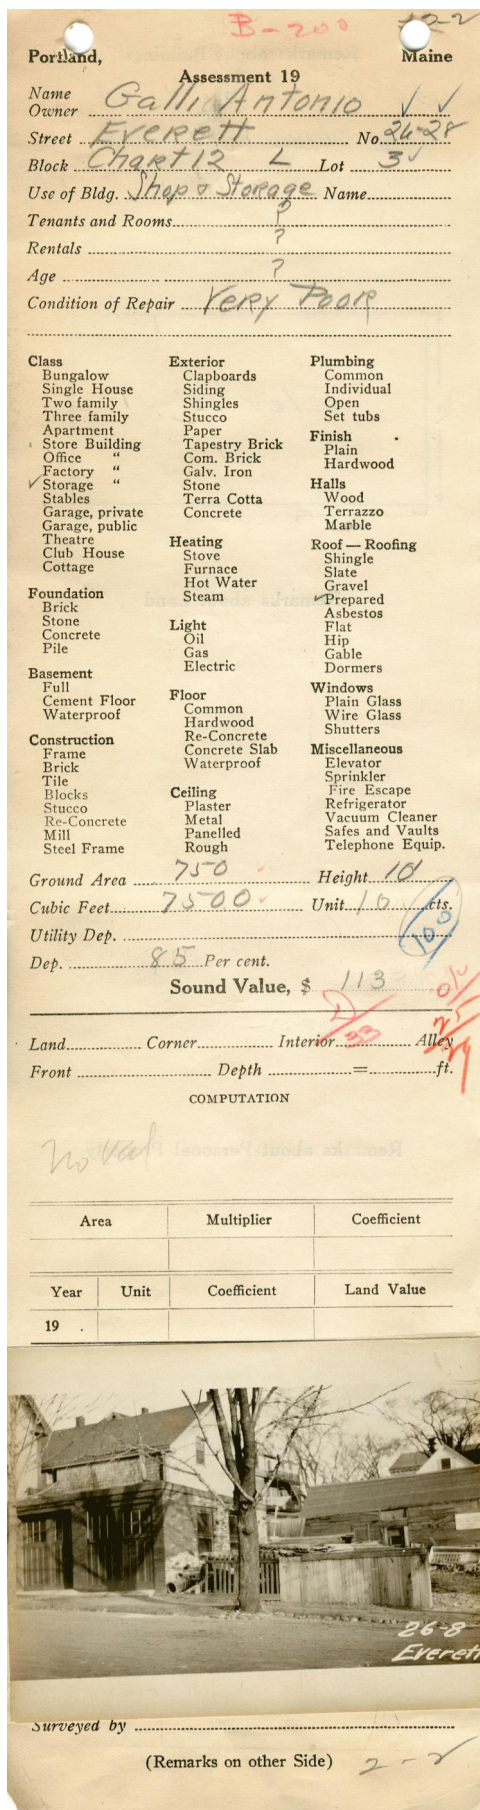 B-200
Portland, Maine
Assessment 19
Name
Owner Galli Antonio
Street Everett No. 26-28
Block Chart 12 L Lot 3
Use of Bldg. Shop & Storage Name
Tenants and Rooms ?
Rentals ?
Age ?
Condition of Repair Very Poor
Class
Bungalow
Single House
Two family
Three family
Apartment
Store Building
Office "
Factory "
✓ Storage "
Stables
Garage, private
Garage, public
Theatre
Club House
Cottage
Foundation
Brick
Stone
Concrete
Pile
Basement
Full
Cement Floor
Waterproof
Construction
Frame
Brick
Tile
Blocks
Stucco
Re-Concrete
Mill
Steel Frame
Exterior
Clapboards
Siding
Shingles
Stucco
Paper
Tapestry Brick
Com. Brick
Galv. Iron
Stone
Terra Cotta
Concrete
Heating
Stove
Furnace
Hot Water
Steam
Light
Oil
Gas
Electric
Floor
Common
Hardwood
Re-Concrete
Concrete Slab
Waterproof
Ceiling
Plaster
Metal
Panelled
Rough
Plumbing
Common
Individual
Open
Set tubs
Finish
Plain
Hardwood
Halls
Wood
Terrazzo
Marble
Roof — Roofing
Shingle
Slate
Gravel
✓ Prepared
Asbestos
Flat
Hip
Gable
Dormers
Windows
Plain Glass
Wire Glass
Shutters
Miscellaneous
Elevator
Sprinkler
Fire Escape
Refrigerator
Vacuum Cleaner
Safes and Vaults
Telephone Equip.
Ground Area 750 Height 10
Cubic Feet 7500 Unit 10 cts.
Utility Dep. 100
Dep. 85 Per cent.
Sound Value, $ 113
Land Corner Interior Alley
Front Depth = ft.
COMPUTATION
no val
Area Multiplier Coefficient
Year Unit Coefficient Land Value
19 .
26-8
Everett
Surveyed by
(Remarks on other Side) 2-2